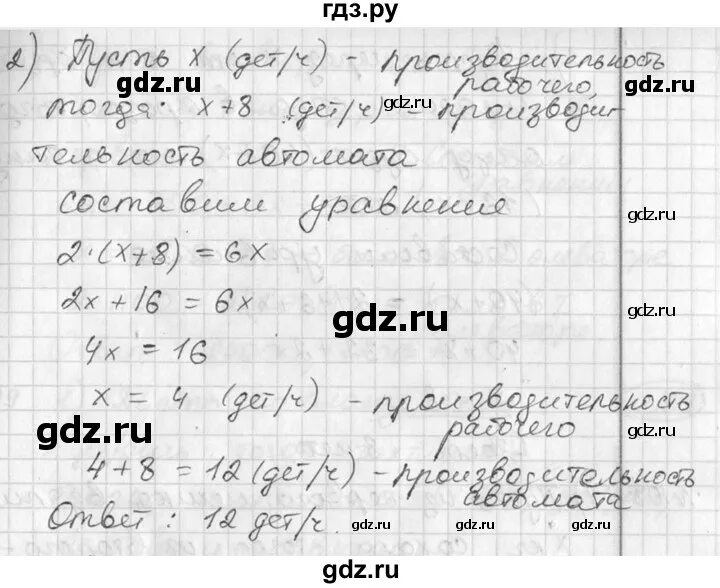 гдз.ру
2) Пусть x (дет/ч) - производительность
рабочего,
gdz.ru
тогда: x+8 gdz.ru (дет/ч) = производи-
gdz.ru
тельность автомата
составим уравнение
gdz.ru
2·(x+8) = 6x
2x + 16 = 6x
gdz.ru
gdz.ru
4x = 16
x = 4 (дет/ч) - производительность
gdz.ru
рабочего
gdz.ru
4+8 = 12 (дет/ч) - производительность
gdz.ru
автомата
Ответ: 12 дет/ч.
gdz.ru
gdz.ru
gdz.ru
gdz.ru